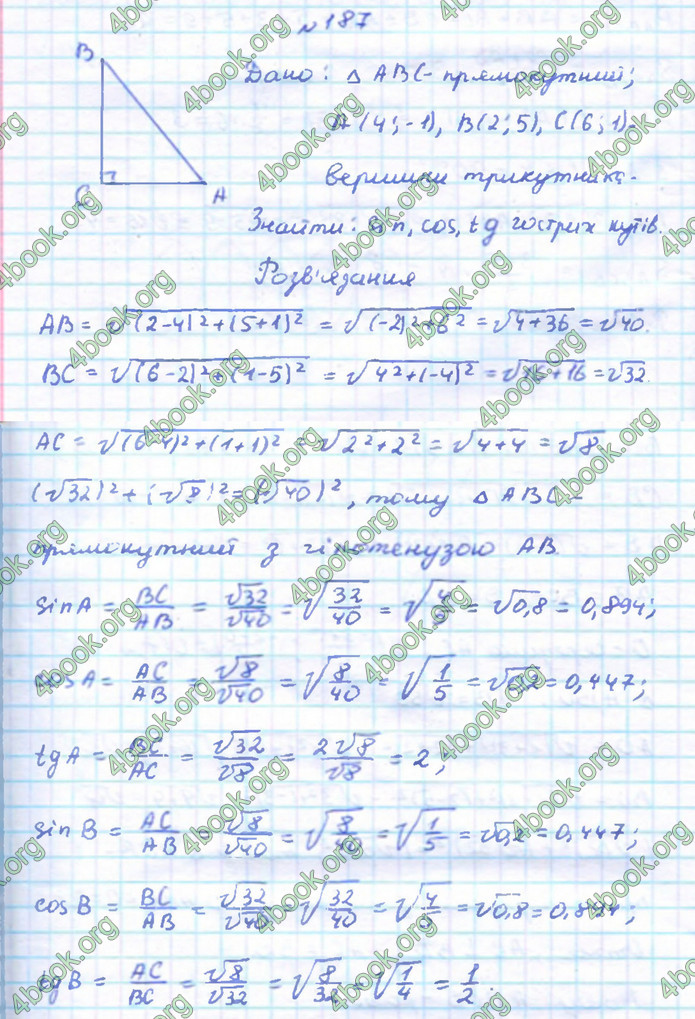 №187
B
Дано: △ ABC - прямокутний;
A(4; -1), B(2; 5), C(6; 1) -
C
A
вершини трикутника.
Знайти: sin, cos, tg гострих кутів.
Розв'язання
AB = √(2-4)²+(5+1)² = √(-2)²+6² = √4+36 = √40.
BC = √(6-2)²+(1-5)² = √4²+(-4)² = √16+16 = √32.
AC = √(6-4)²+(1+1)² = √2²+2² = √4+4 = √8
(√32)²+(√8)²=(√40)², тому △ ABC -
прямокутний з гіпотенузою AB.
sinA = BC/AB = √32/√40 = √32/40 = √4/5 = √0,8 = 0,894;
cosA = AC/AB = √8/√40 = √8/40 = √1/5 = √0,2 = 0,447;
tgA = BC/AC = √32/√8 = 2√8/√8 = 2;
sin B = AC/AB = √8/√40 = √8/40 = √1/5 = √0,2 = 0,447;
cosB = BC/AB = √32/√40 = √32/40 = √4/5 = √0,8 = 0,894;
tgB = AC/BC = √8/√32 = √8/32 = √1/4 = 1/2.
4book.org